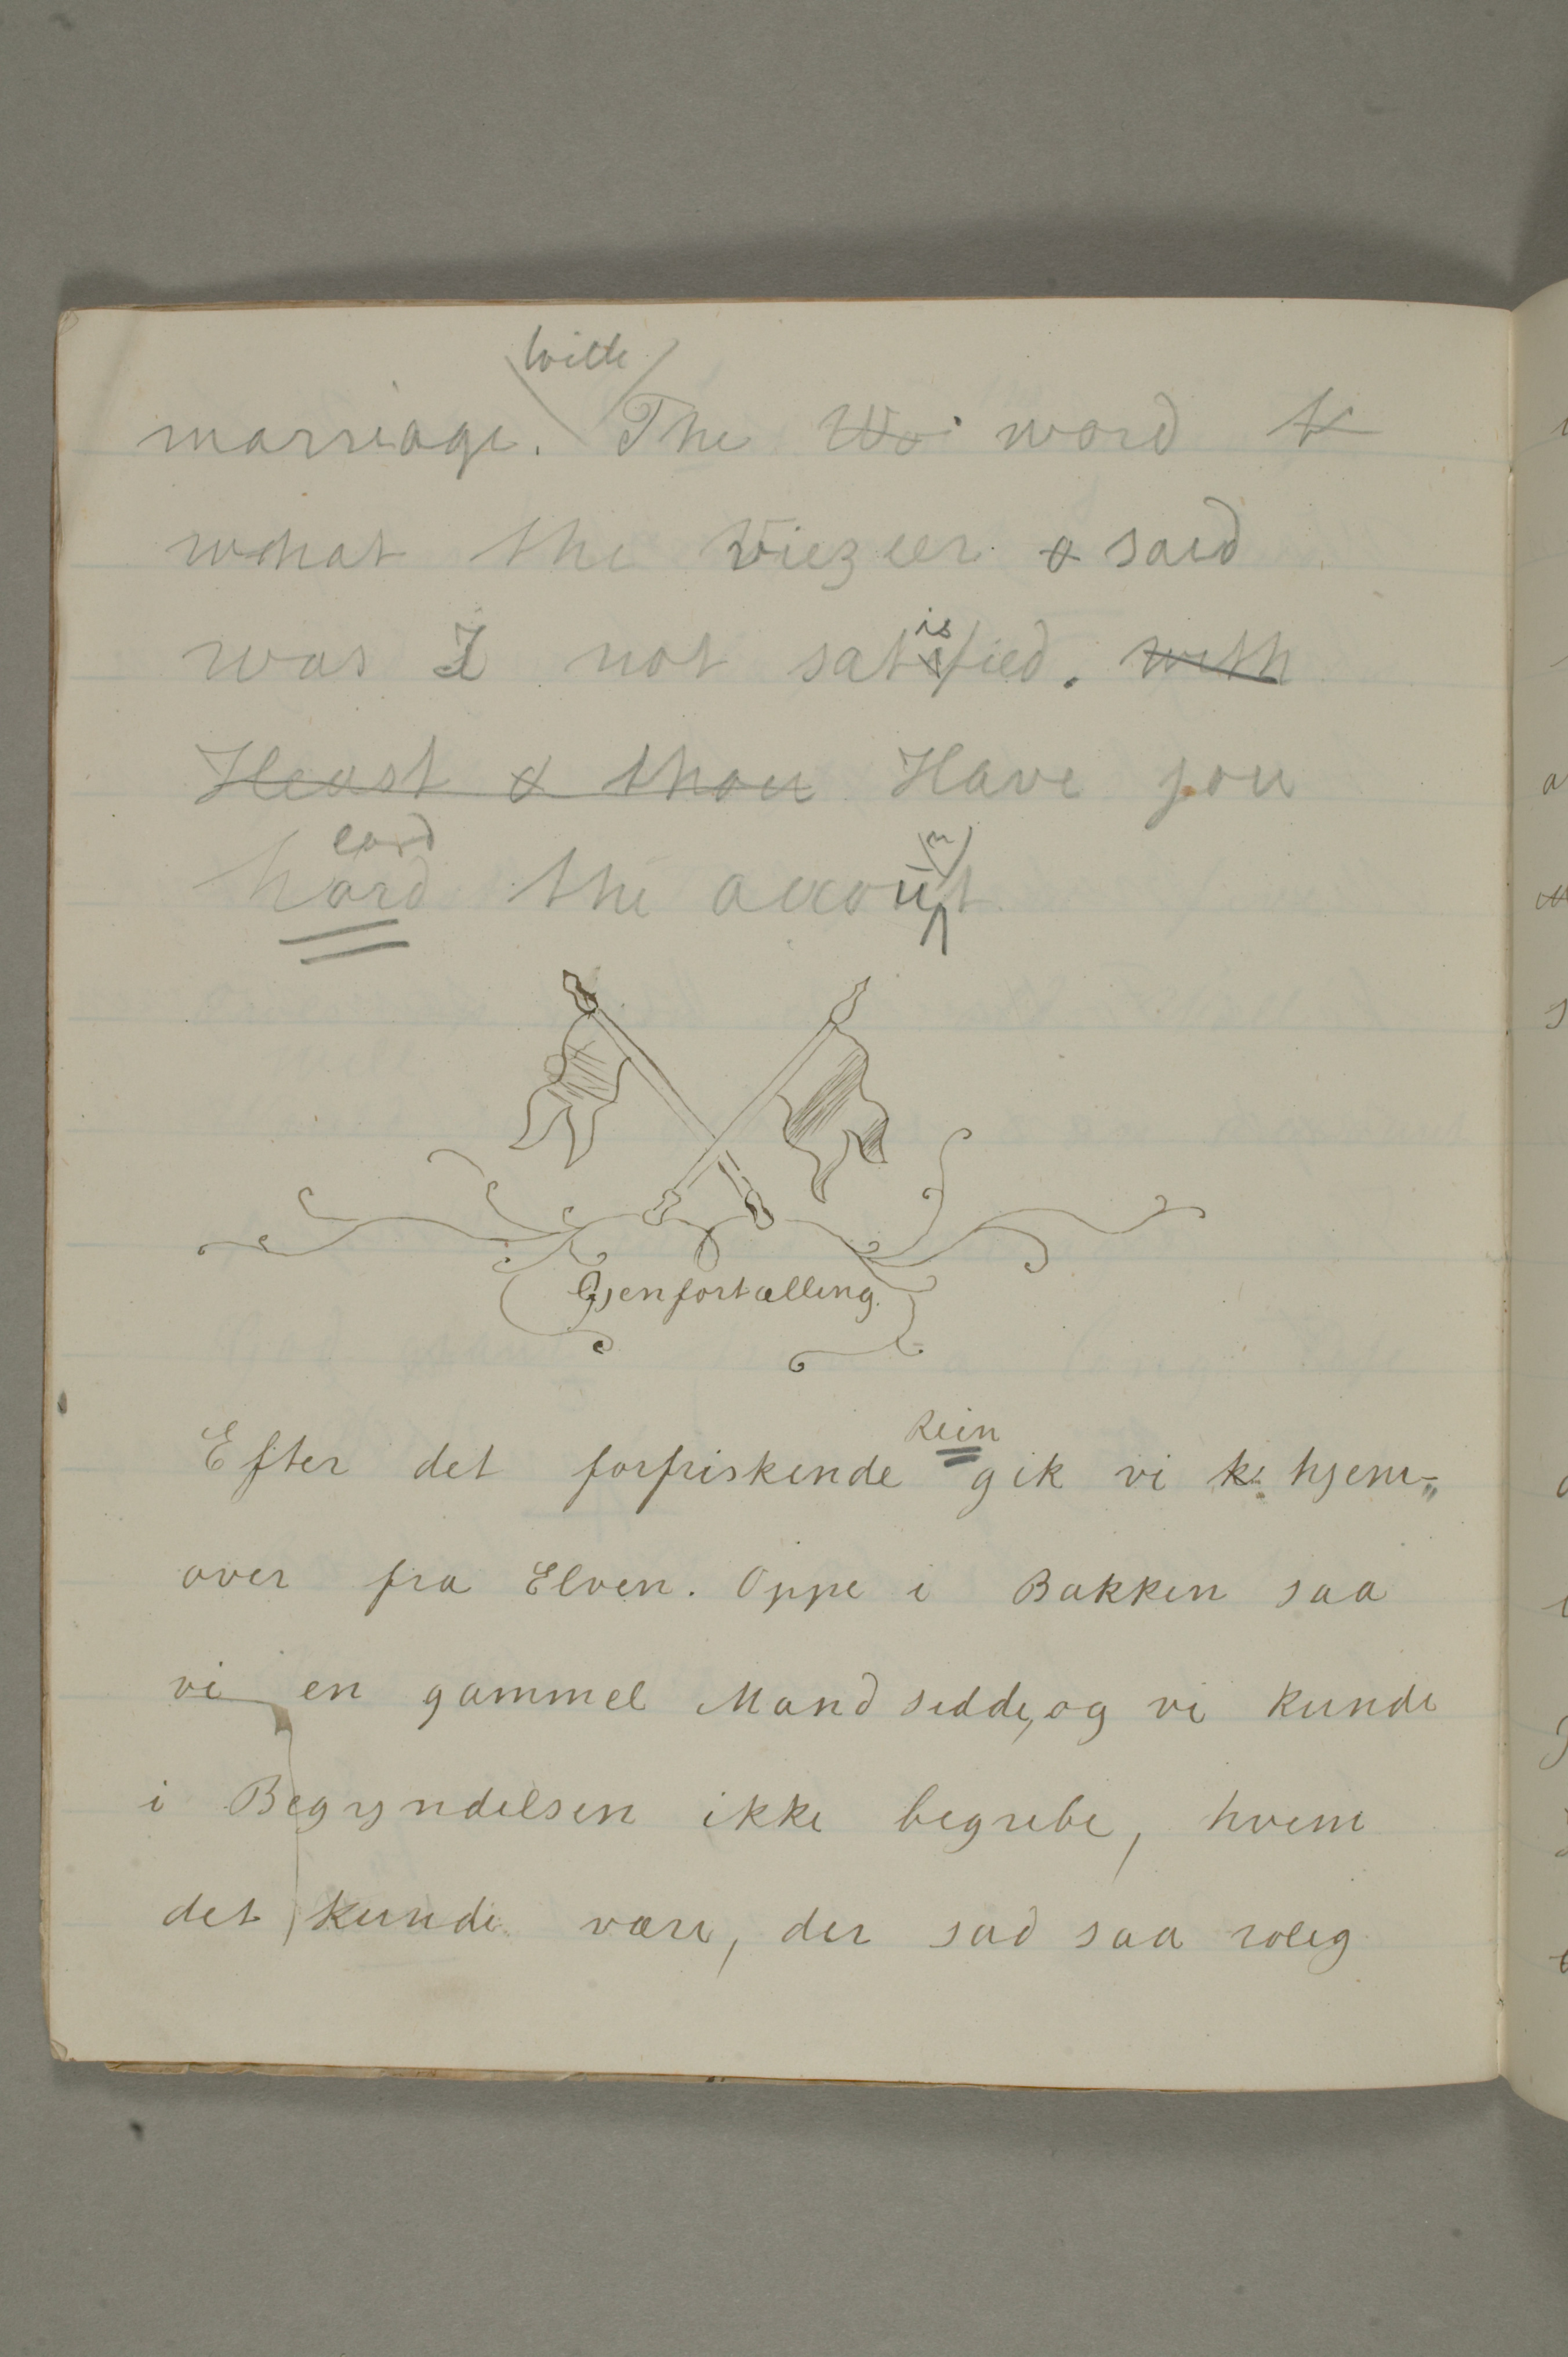 with
marriage. The Wo word t
what the Viezeer & said
was I not satisfied. with
Heast & thou Have you
hard eard the account
Gjenfortælling.
Efter det forfriskende Rein gik vi k hjem-
over fra Elven. Oppe i Bakken saa
vi en gammel Mand sidde, og vi kunde
i Begyndelsen ikke begribe, hvem
det kunde være, der sad saa rolig